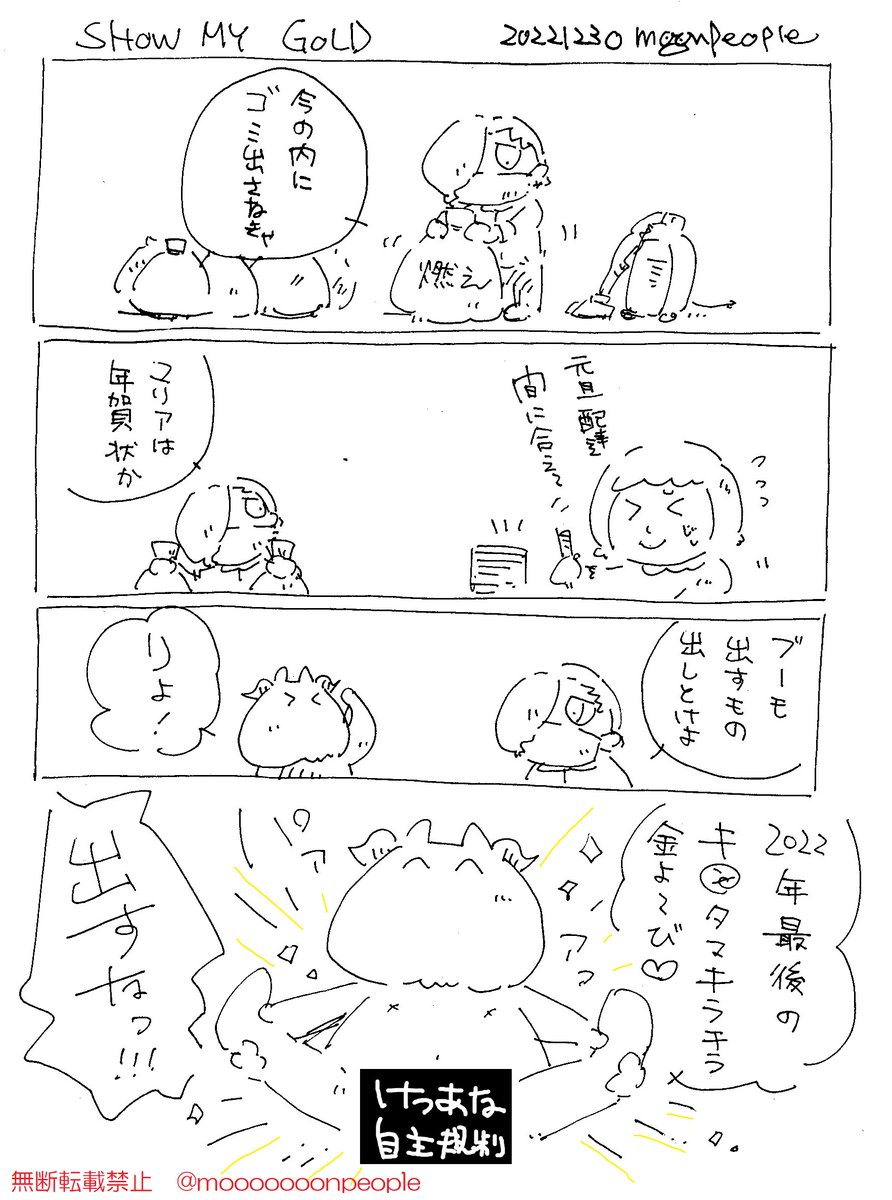 SHOW MY GOLD
20221230 moonpeople
今の内に
ゴミ出さねきゃ
燃えん
元旦配達
間に合えー
マリアは
年賀状か
ブーモ
出すもの
出しとけよ
りょ!
2022年最後の
キンタマキラキラ
金よ~び♡
パァ
アっ
出すなっ!!!
けつあな
自主規制
無断転載禁止 @mooooooonpeople